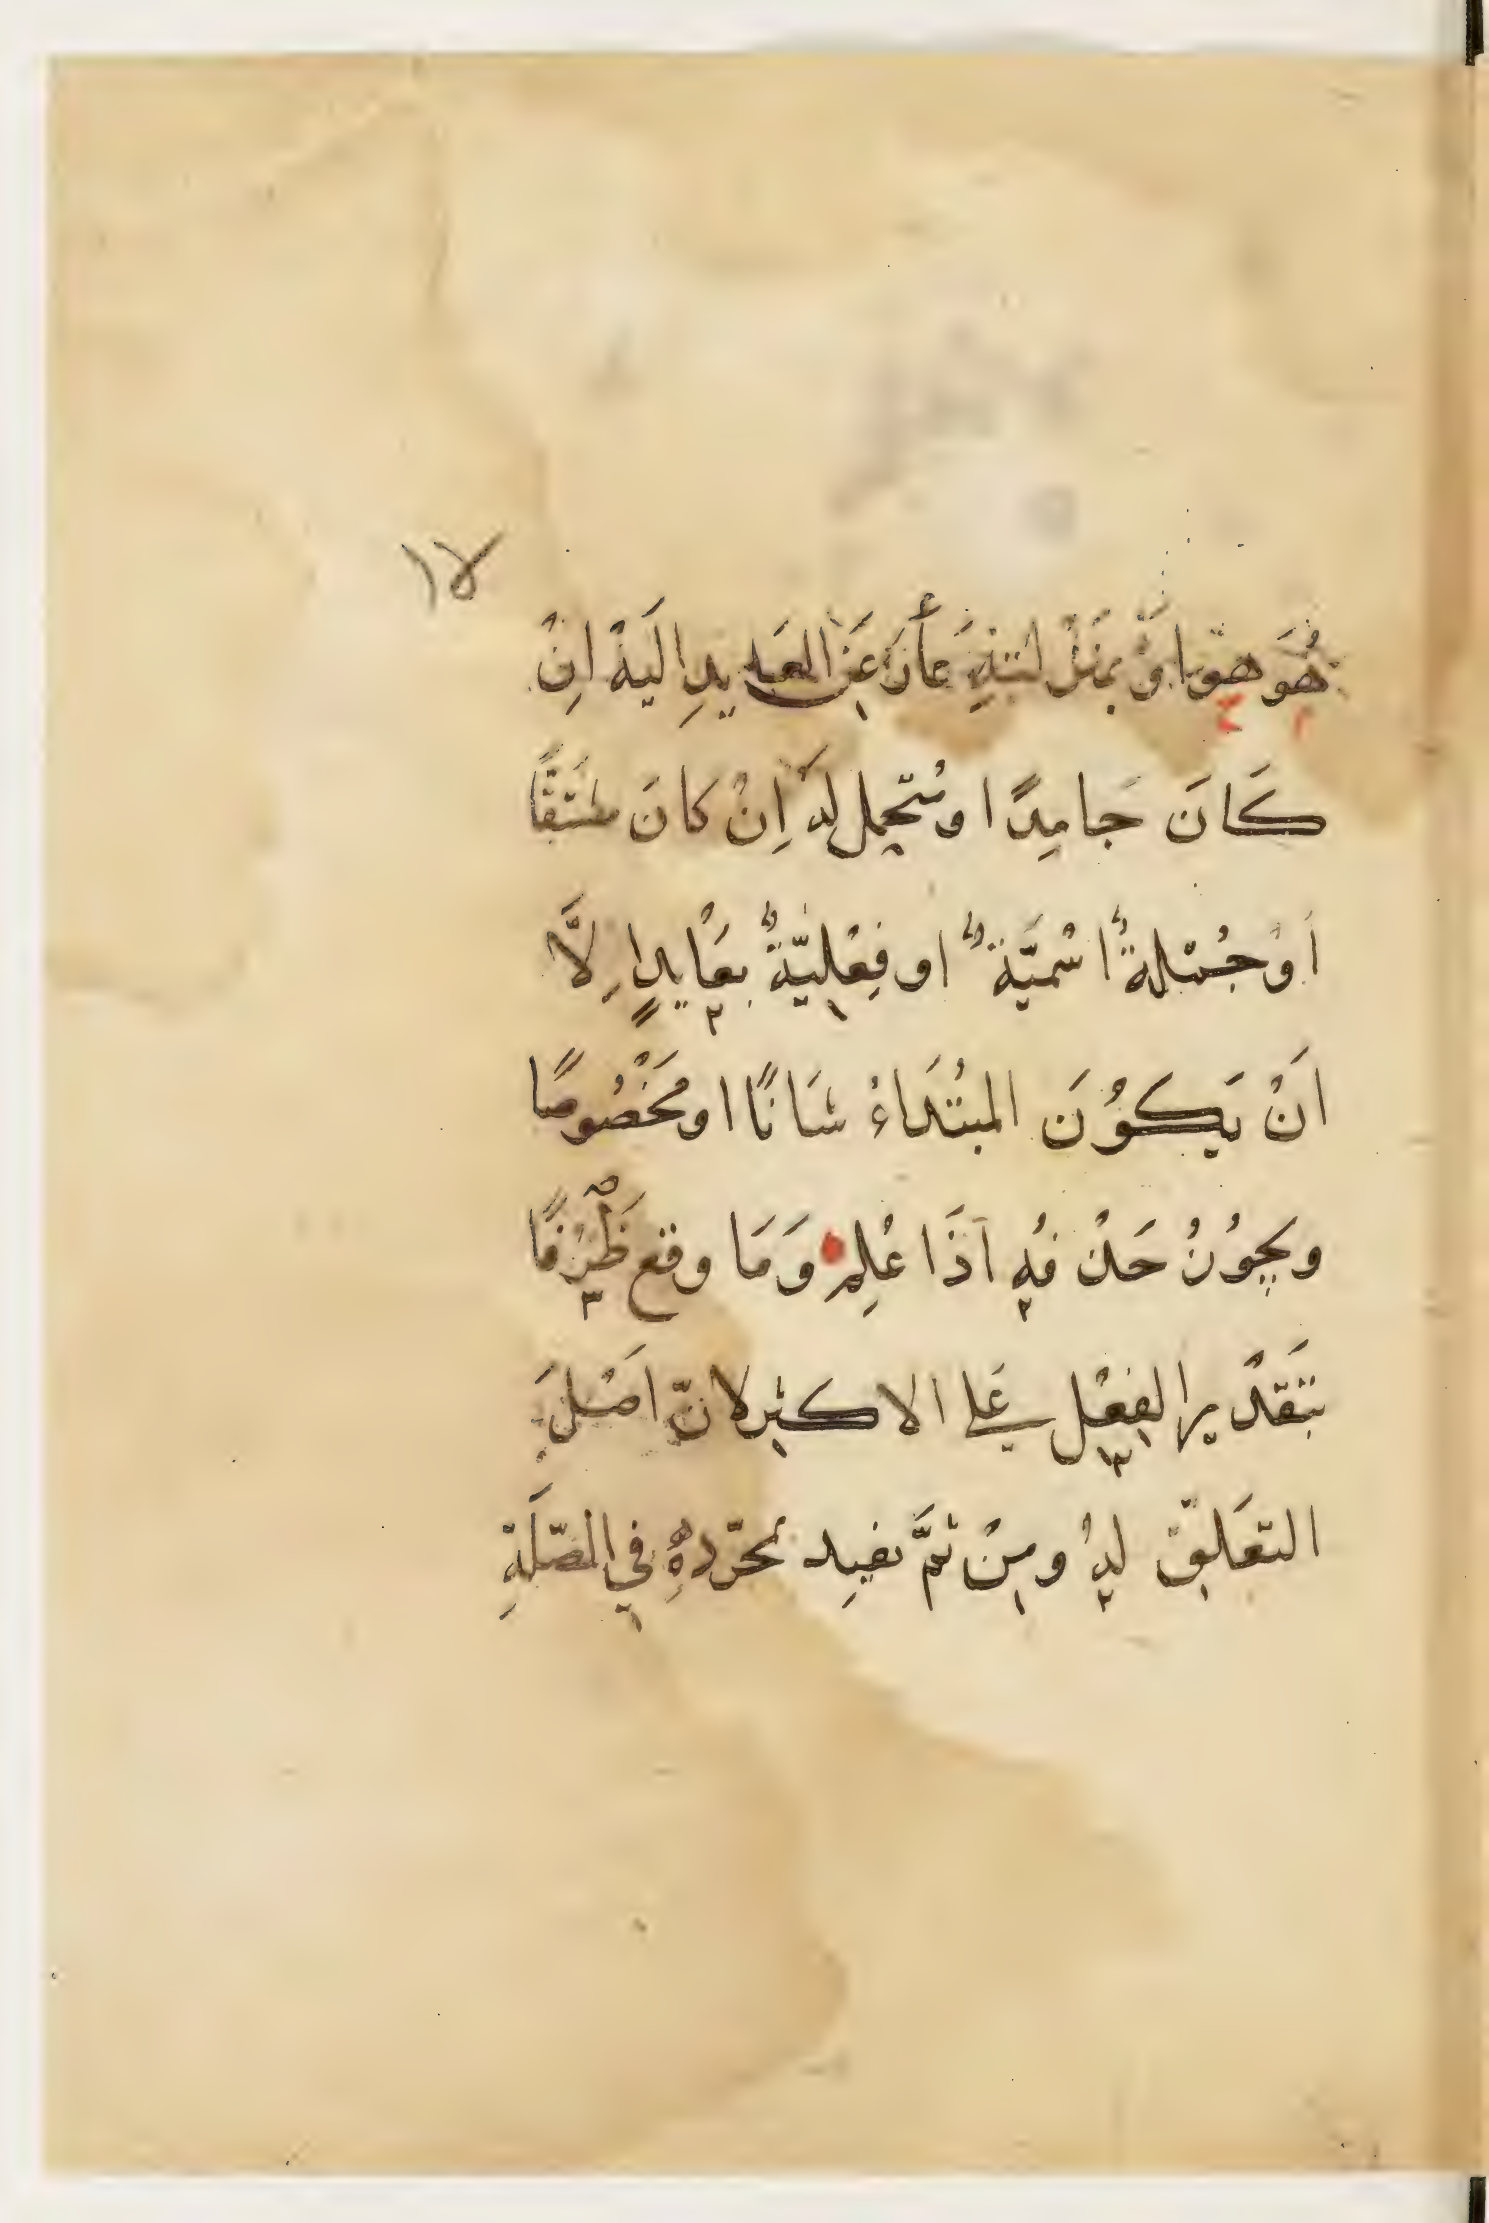 ١٧
هُوَ هُوَ اَوْ بمَنْزِلَتِهِ عَارٍ عَنِ العَايِدِ اِلَيْهِ اِنْ
كَانَ جَامِدًا او مُتَحمل لَهُ اِنْ كانَ مشتَقًّا
اَوْ جُمْلةٌ اسْميَّةٌ او فِعْليّةٌ بعَايدٍ اِلَّا
اَنْ يَكُوُنَ المبُتَدَاءْ شَانًا او مَخْصُوصًا
ويجوُزُ حَذْفُهِ اَذَا عُلِمِ وَمَا وقع ظَرْفًا
بَتَقْدير الفِعْل عَلي الاكثر لانّ اصْل
التعَلق لهُ ومِنْ ثمَّ في الصّلَةِ